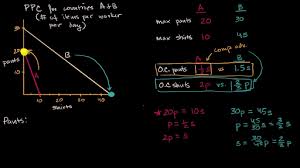 PPC for countries A+B
(# of items per worker
per day)
A B
max pants 20 30
max shirts 10 45
comp. adv.
A B
O.C. pants 1/2 s vs 1.5 s
O.C. shirts 2 p vs 2/3 p
30
20
pants
10
A
B
10 20 30 40
shirts
Pants:
20p = 10s
p = 1/2 s
2p = s
30p = 45s
p = 45/30 s = 3/2 s
s = 30/45 p = 2/3 p